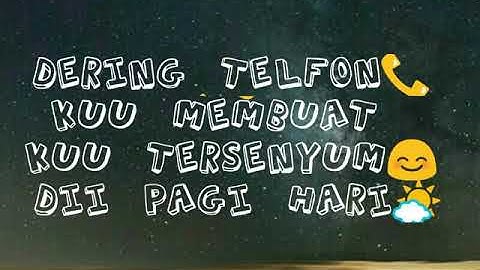 DERING TELFON📞
KUU MEMBUAT
KUU TERSENYUM😊
DII PAGI HARI🌤